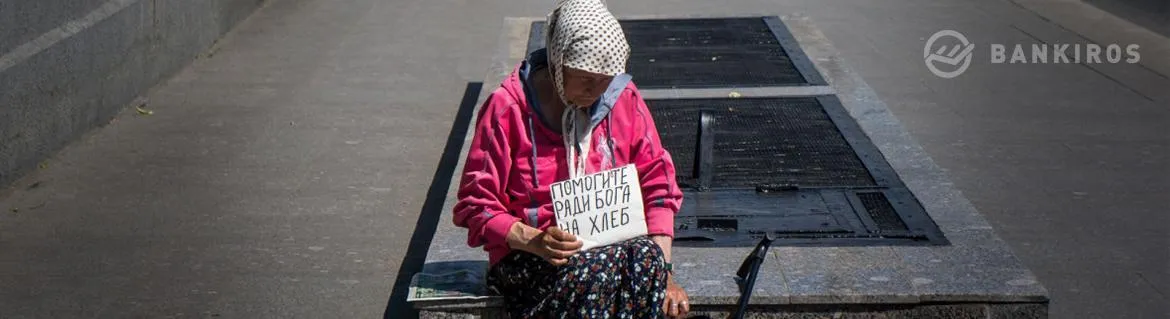 BANKIROS
ПОМОГИТЕ
РАДИ БОГА
НА ХЛЕБ